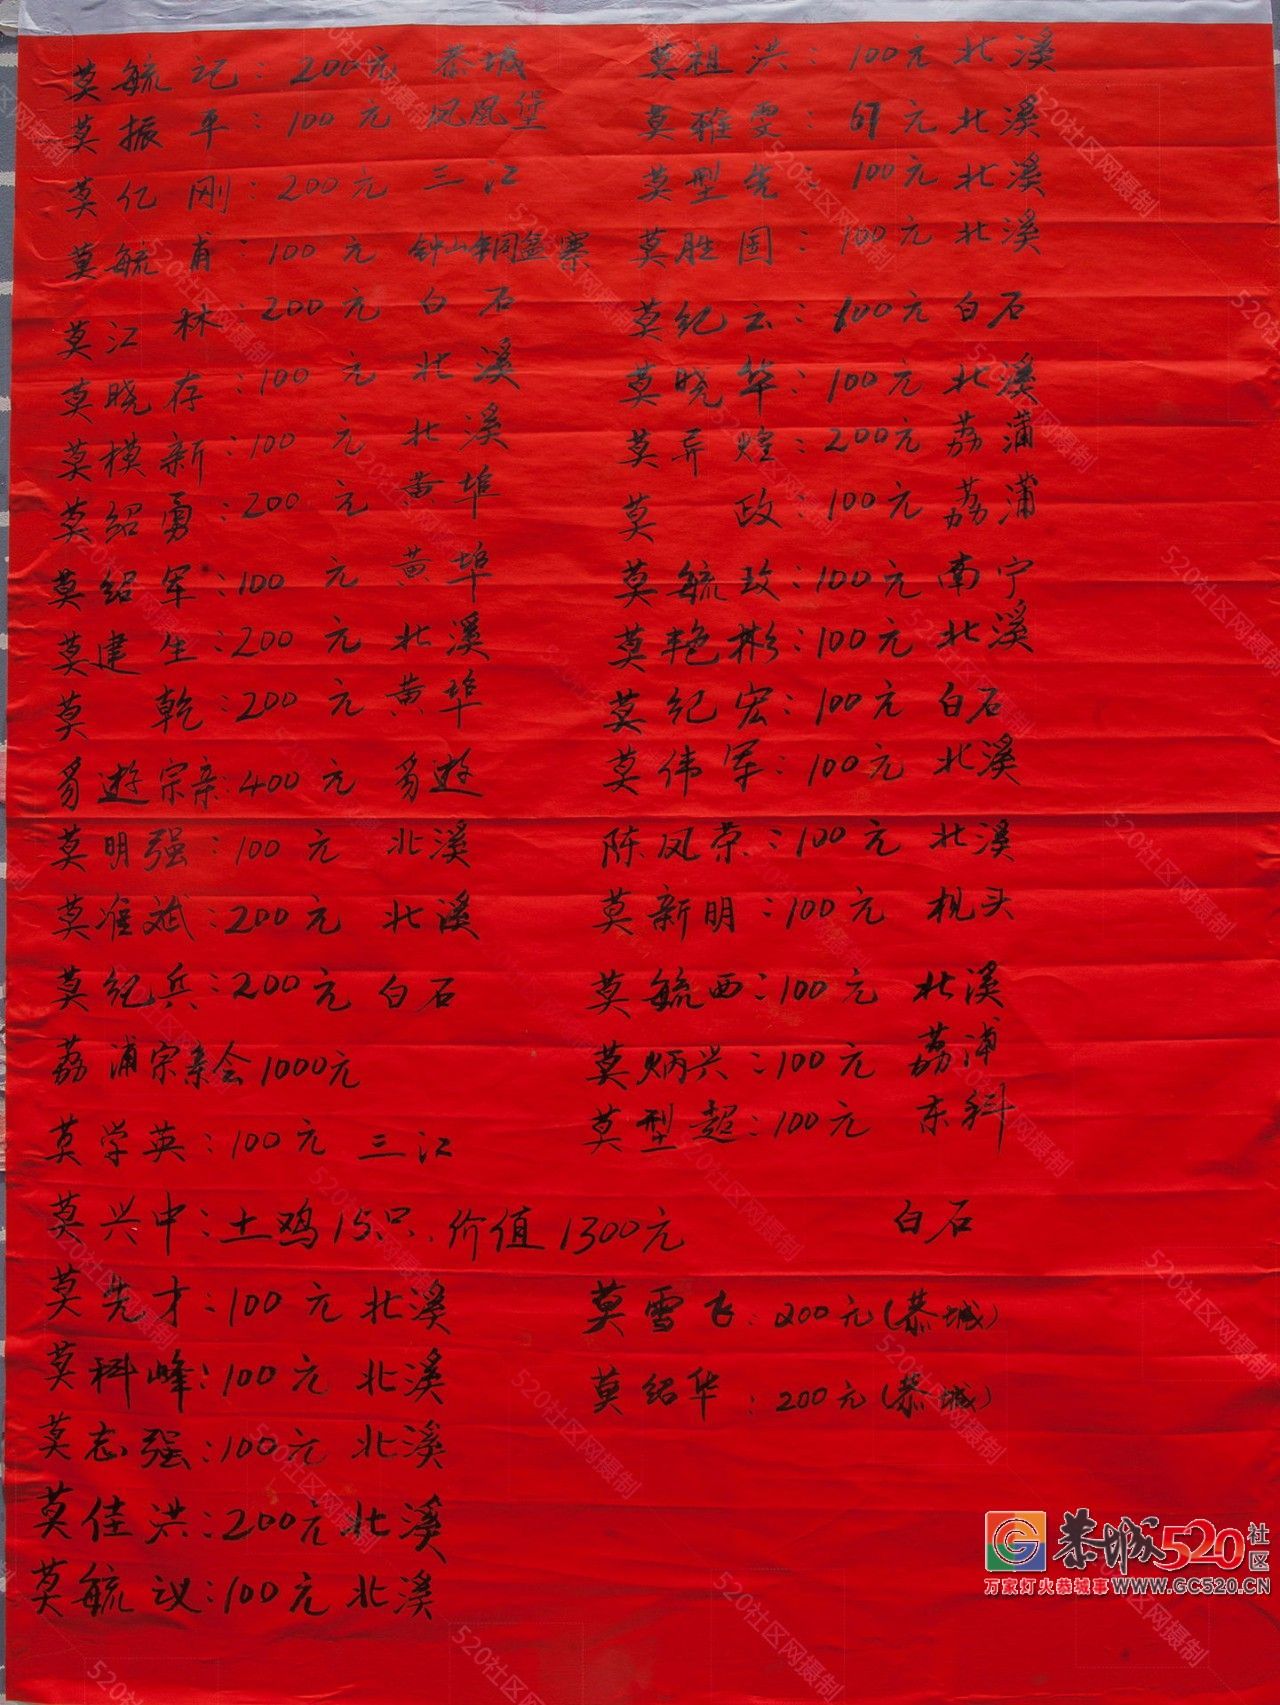 莫毓记：200元 恭城
莫振平：100元 凤凰堡
莫亿刚：200元 三江
莫毓甫：100元 钟山铜盆寨
莫江林：200元 白石
莫晓存：100元 北溪
莫模新：100元 北溪
莫绍勇：200元 黄埠
莫绍军：100元 黄埠
莫建生：200元 北溪
莫 乾：200元 黄埠
宗亲：400元
莫明强：100元 北溪
莫准斌：200元 北溪
莫纪兵：200元 白石
荔浦宗亲会1000元
莫学英：100元 三江
莫兴中：土鸡15只，价值1300元 白石
莫先才：100元 北溪
莫科峰：100元 北溪
莫志强：100元 北溪
莫佳洪：200元 北溪
莫毓议：100元 北溪
莫祖洪：100元 北溪
莫雅雯：61元 北溪
莫型先：100元 北溪
莫胜国：100元 北溪
莫纪云：100元 白石
莫晓华：100元 北溪
莫异煌：200元 荔蒲
莫 政：100元 荔蒲
莫毓玫：100元 南宁
莫艳彬：100元 北溪
莫纪宏：100元 白石
莫伟军：100元 北溪
陈凤荣：100元 北溪
莫新明：100元 枧头
莫毓西：100元 北溪
莫炳兴：100元 荔浦
莫型超：100元 东科
莫雪飞：200元（恭城）
莫绍华：200元（恭城）
恭城520社区
万家灯火恭城事 WWW.GC520.CN
520社区网摄制